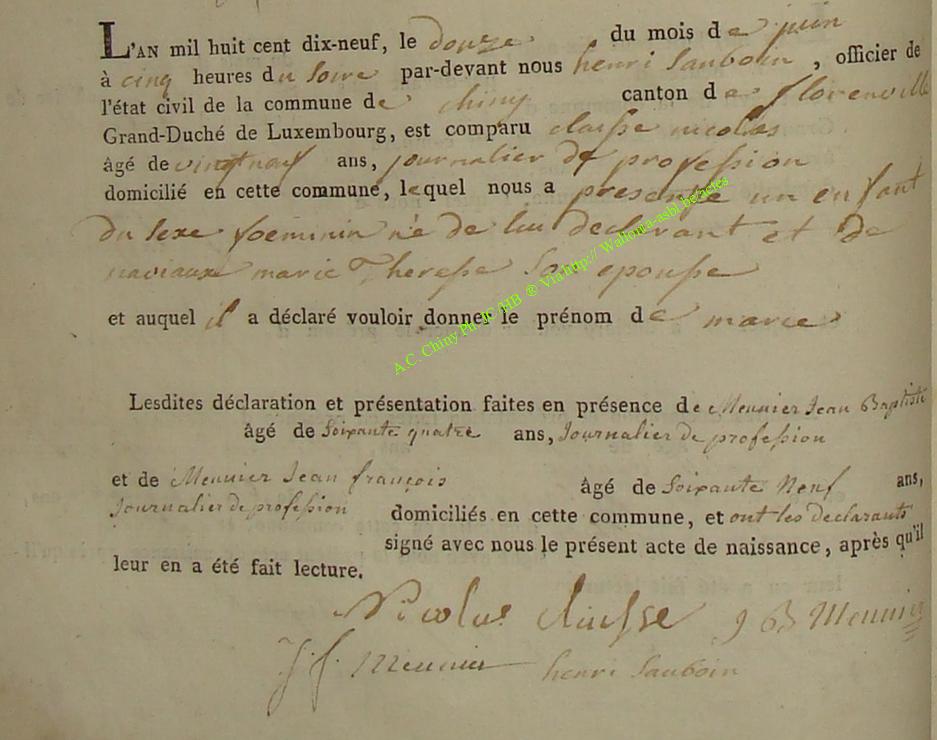 L'AN mil huit cent dix-neuf, le douze du mois de juin
à cinq heures du soire par-devant nous henri Sauboin, officier de
l'état civil de la commune de chiny canton de florenville
Grand-Duché de Luxembourg, est comparu claisse nicolas
âgé de vingt neuf ans, journalier de profession
domicilié en cette commune, lequel nous a presenté un enfant
du sexe foeminin né de lui declarant et de
naviaux marie Therese son epousse
et auquel il a déclaré vouloir donner le prénom de marie
Lesdites déclaration et présentation faites en présence de Meunier Jean Baptiste
âgé de Soixante quatre ans, Journalier de profession
et de Meunier Jean françois âgé de Soixante Neuf ans,
Journalier de profession domiciliés en cette commune, et ont les declarants
signé avec nous le présent acte de naissance, après qu'il
leur en a été fait lecture.
Nicolas claisse J B Meunier
J. f. Meunier henri Sauboin
A.C. Chiny Ph JP MB ® Via http:// Wallonia-asbl.be/actes